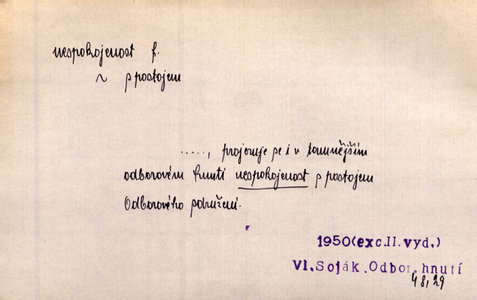 nespokojenost f.
~ s postojem
....., projevuje se i v tamnějším
odborovém hnutí nespokojenost s postojem
Odborového sdružení.
1950(exc.II.vyd.)
Vl.Soják.Odbor.hnutí
48,29